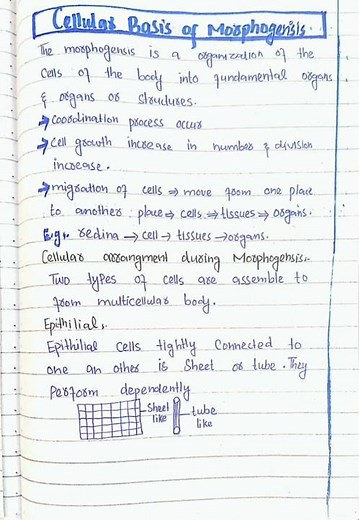 Cellular Basis of Morphogenisis.
The morphogensis is a organization of the
Cells of the body into fundamental organs
& organs or structures.
→ Coordination process occur
→ Cell growth increase in number & division
increase.
→ migration of cells ⇒ move from one place
to another place → cells ⇒ tissues ⇒ organs.
E.g:- redina → cell → tissues → organs.
Cellular arrangment during Morphogensis:-
Two types of cells are assemble to
from multicellular body.
Epithilial:-
Epithilial cells tightly connected to
one an other is Sheet or tube. They
Perform dependently
Sheet like
tube like